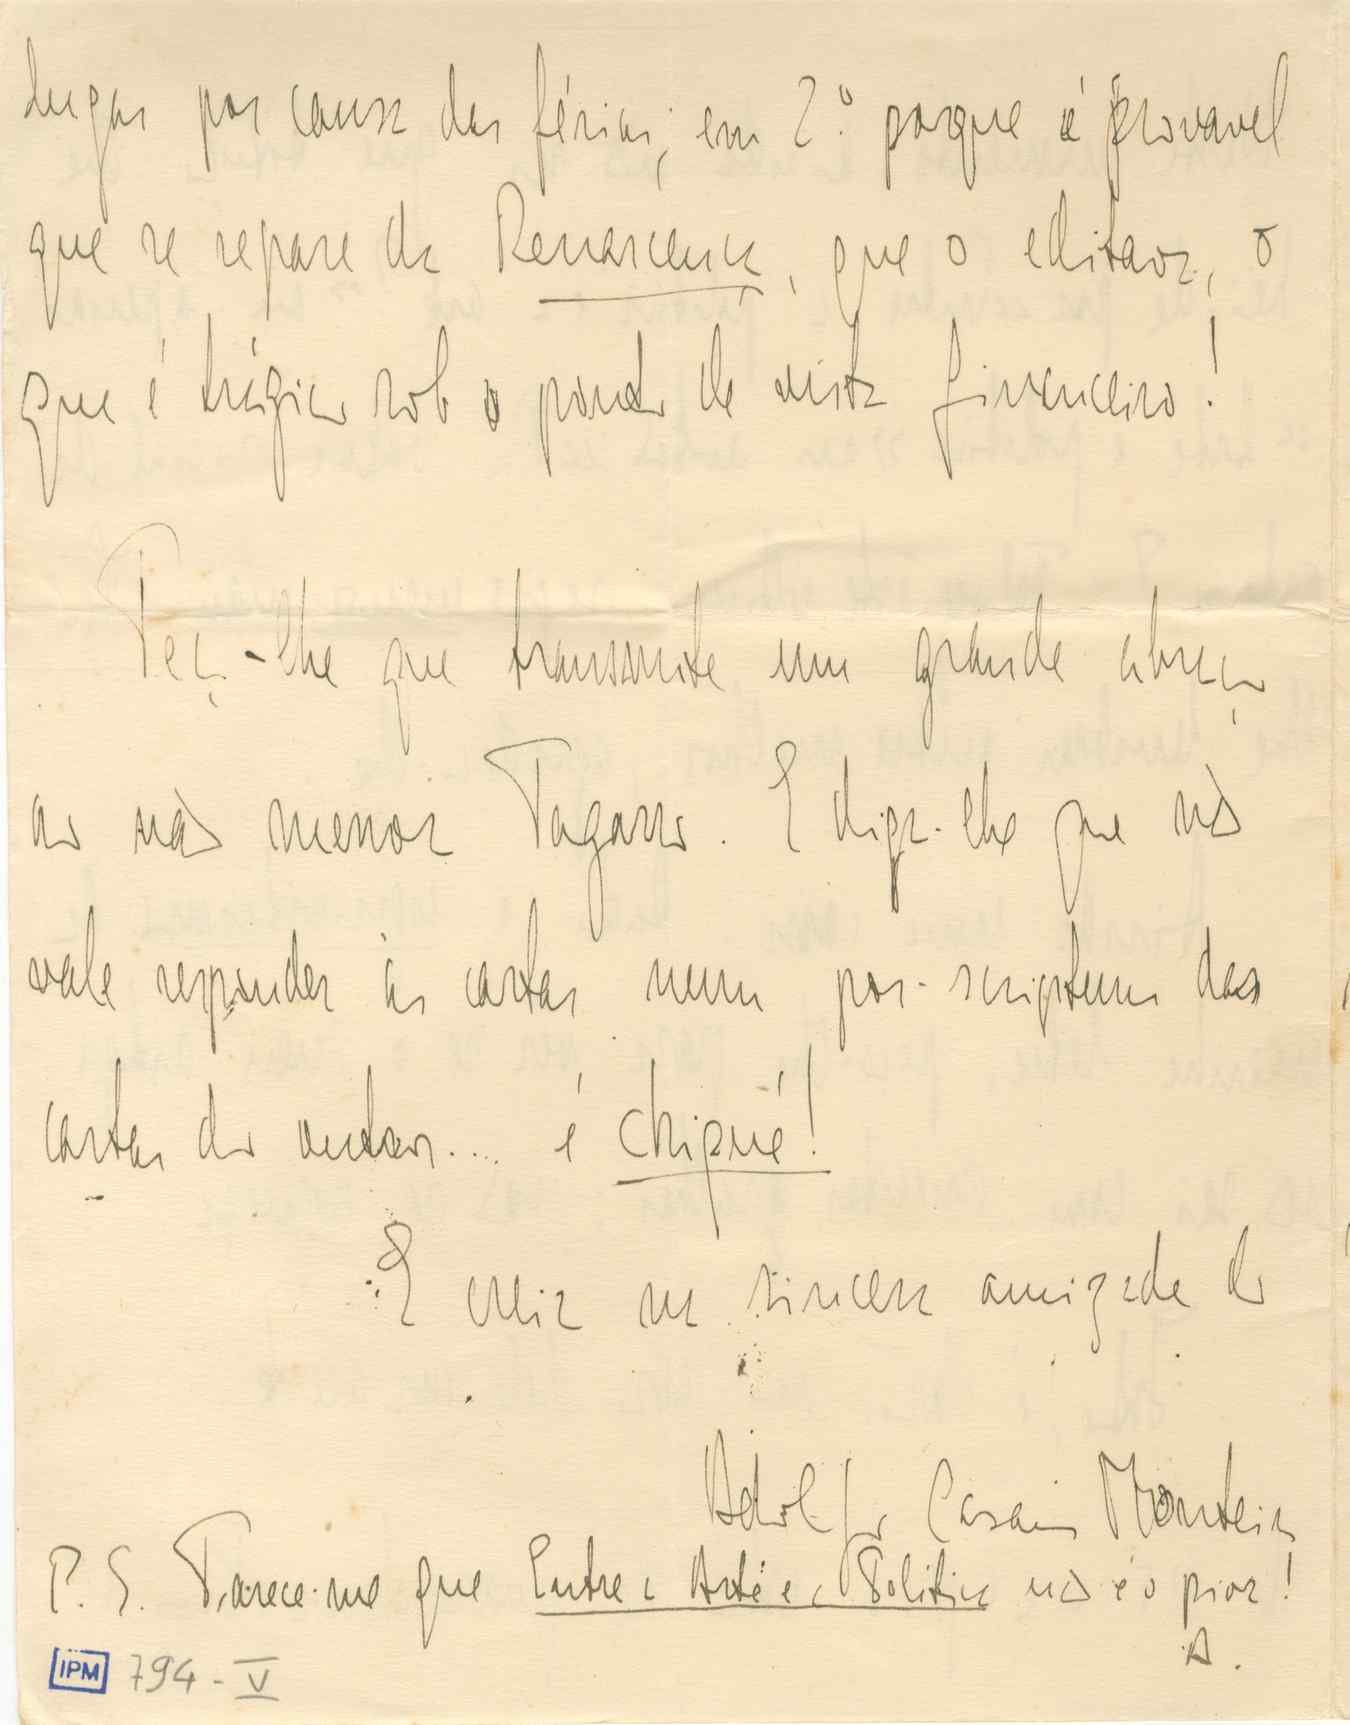 lugar por causa das férias; em 2.º porque é provavel
que se separe da Renascença, que o editava, o
que é trágico sob o ponto de vista financeiro!
Peço-lhe que transmita um grande abraço
ao não menor Tagarro. E diga-lhe que não
vale responder ás cartas num pos-scriptum das
cartas do outro.... é chiqué!
E creia na sincera amizade do
Adolfo Casais Monteiro
P. S. Parece-me que Entre a Arte e a Politica não é o pior!
A.
IPM 794-V